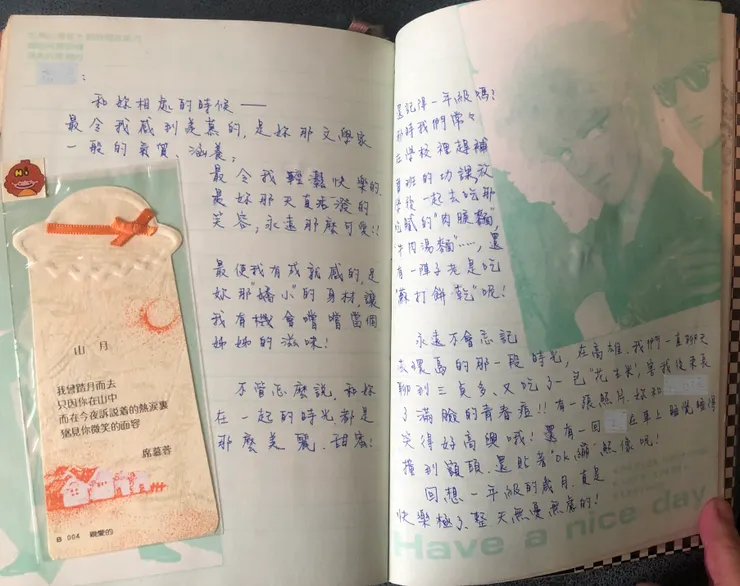 :
和妳相處的時候——
最令我感到羨慕的,是妳那文學家
一般的氣質、涵養;
最令我輕鬆快樂的,
是妳那天真活潑的
笑容,永遠那麼可愛!!
最使我有成就感的,是
妳那"嬌小"的身材,讓
我有機會嚐嚐當個
姊姊的滋味!
不管怎麼說,和妳
在一起的時光都是
那麼美麗、甜蜜!
山月
我曾踏月而去
只因你在山中
而在今夜訴說着的熱淚裏
猶見你微笑的面容
席慕蓉
B 004 親愛的
還記得一年級嗎?
那時我們常々
在學校裡趕補
習班的功課,放
學後一起去吃那
油膩的"肉臊麵",
牛肉湯麵"……,還
有一陣子老是吃
"蘇打餅乾"呢!
永遠不會忘記
去環島的那一段時光,在高雄,我們一直聊天
聊到三点多、又吃了一包"花生米",害我後來長
了滿臉的青春痘!!有一張照片,妳和
笑得好高興哦!還有一回 在車上睡覺睡得
撞到額頭,還貼著"OK繃"照像呢!
回想一年級的歲月,真是
快樂極了,整天無憂無慮的!
Have a nice day